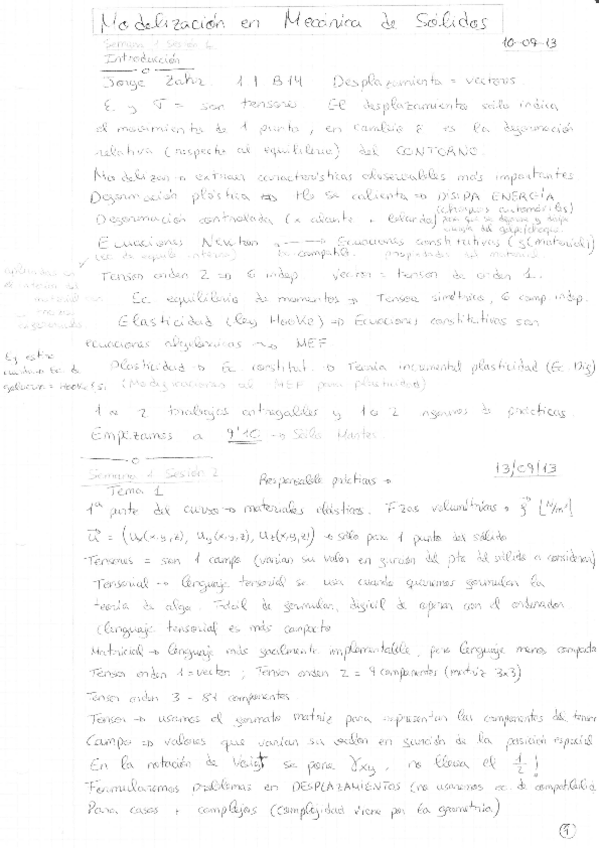 Modelización en Mecánica de Sólidos
Semana 1 Sesión 1 10-09-13
Introducción
Jorge 11 B14 Desplazamiento = vectores
E y σ = son tensores El desplazamiento solo indica
el movimiento de 1 punto, en cambio ε es la deformación
relativa (respecto al equilibrio) del CONTORNO.
Modelizar → extraer características observables más importantes
Deformación plástica → se calienta → DISIPA ENERGÍA
Deformación controlada (choques automóviles)
Ecuaciones Newton ---→ Ecuaciones constitutivas (material)
(ec de equilib interno) Ec compatib. propiedades del material
Tensor orden 2 → 6 indep. Vector = tensor de orden 1.
Ec. equilibrio de momentos → Tensor simétrico, 6 comp indep.
Elasticidad (ley Hooke) → Ecuaciones constitutivas son
ecuaciones algebraicas → MEF
Plasticidad → Ec. constitut. → Teoría incremental plasticidad (Ec. Dif)
(Modificaciones al MEF para plasticidad)
1 o 2 trabajos entregables y 1 o 2 informes de prácticas.
Empezamos a 9'10 → Sólo Martes
Semana 1 Sesión 2 13/09/13
Responsable prácticas →
Tema 1
1ª parte del curso → materiales elásticos. Fzas volumétricas →
u = (ux(x,y,z), uy(x,y,z), uz(x,y,z)) → sólo para 1 punto del sólido
Tensores = son 1 campo (varían su valor en función del pto del sólido a considerar)
Tensorial → Lenguaje tensorial se usa cuando queremos formular la
teoría de algo. Fácil de formular, difícil de operar con el ordenador
(lenguaje tensorial es más compacto
Matricial → Lenguaje más fácilmente implementable, pero lenguaje menos compacto
Tensor orden 1 = vector; Tensor orden 2 = 9 componentes (matriz 3x3)
Tensor orden 3 - 81 componentes
Tensor → usamos el formato matriz para representar las componentes del tensor
Campo ⇒ valores que varían su valor en función de la posición espacial
En la notación de Voigt se pone γxy, no lleva el 1/2!
Formularemos problemas en DESPLAZAMIENTOS (no usaremos ec. de compatibilidad
Para casos + complejos (complejidad viene por la geometría)
1